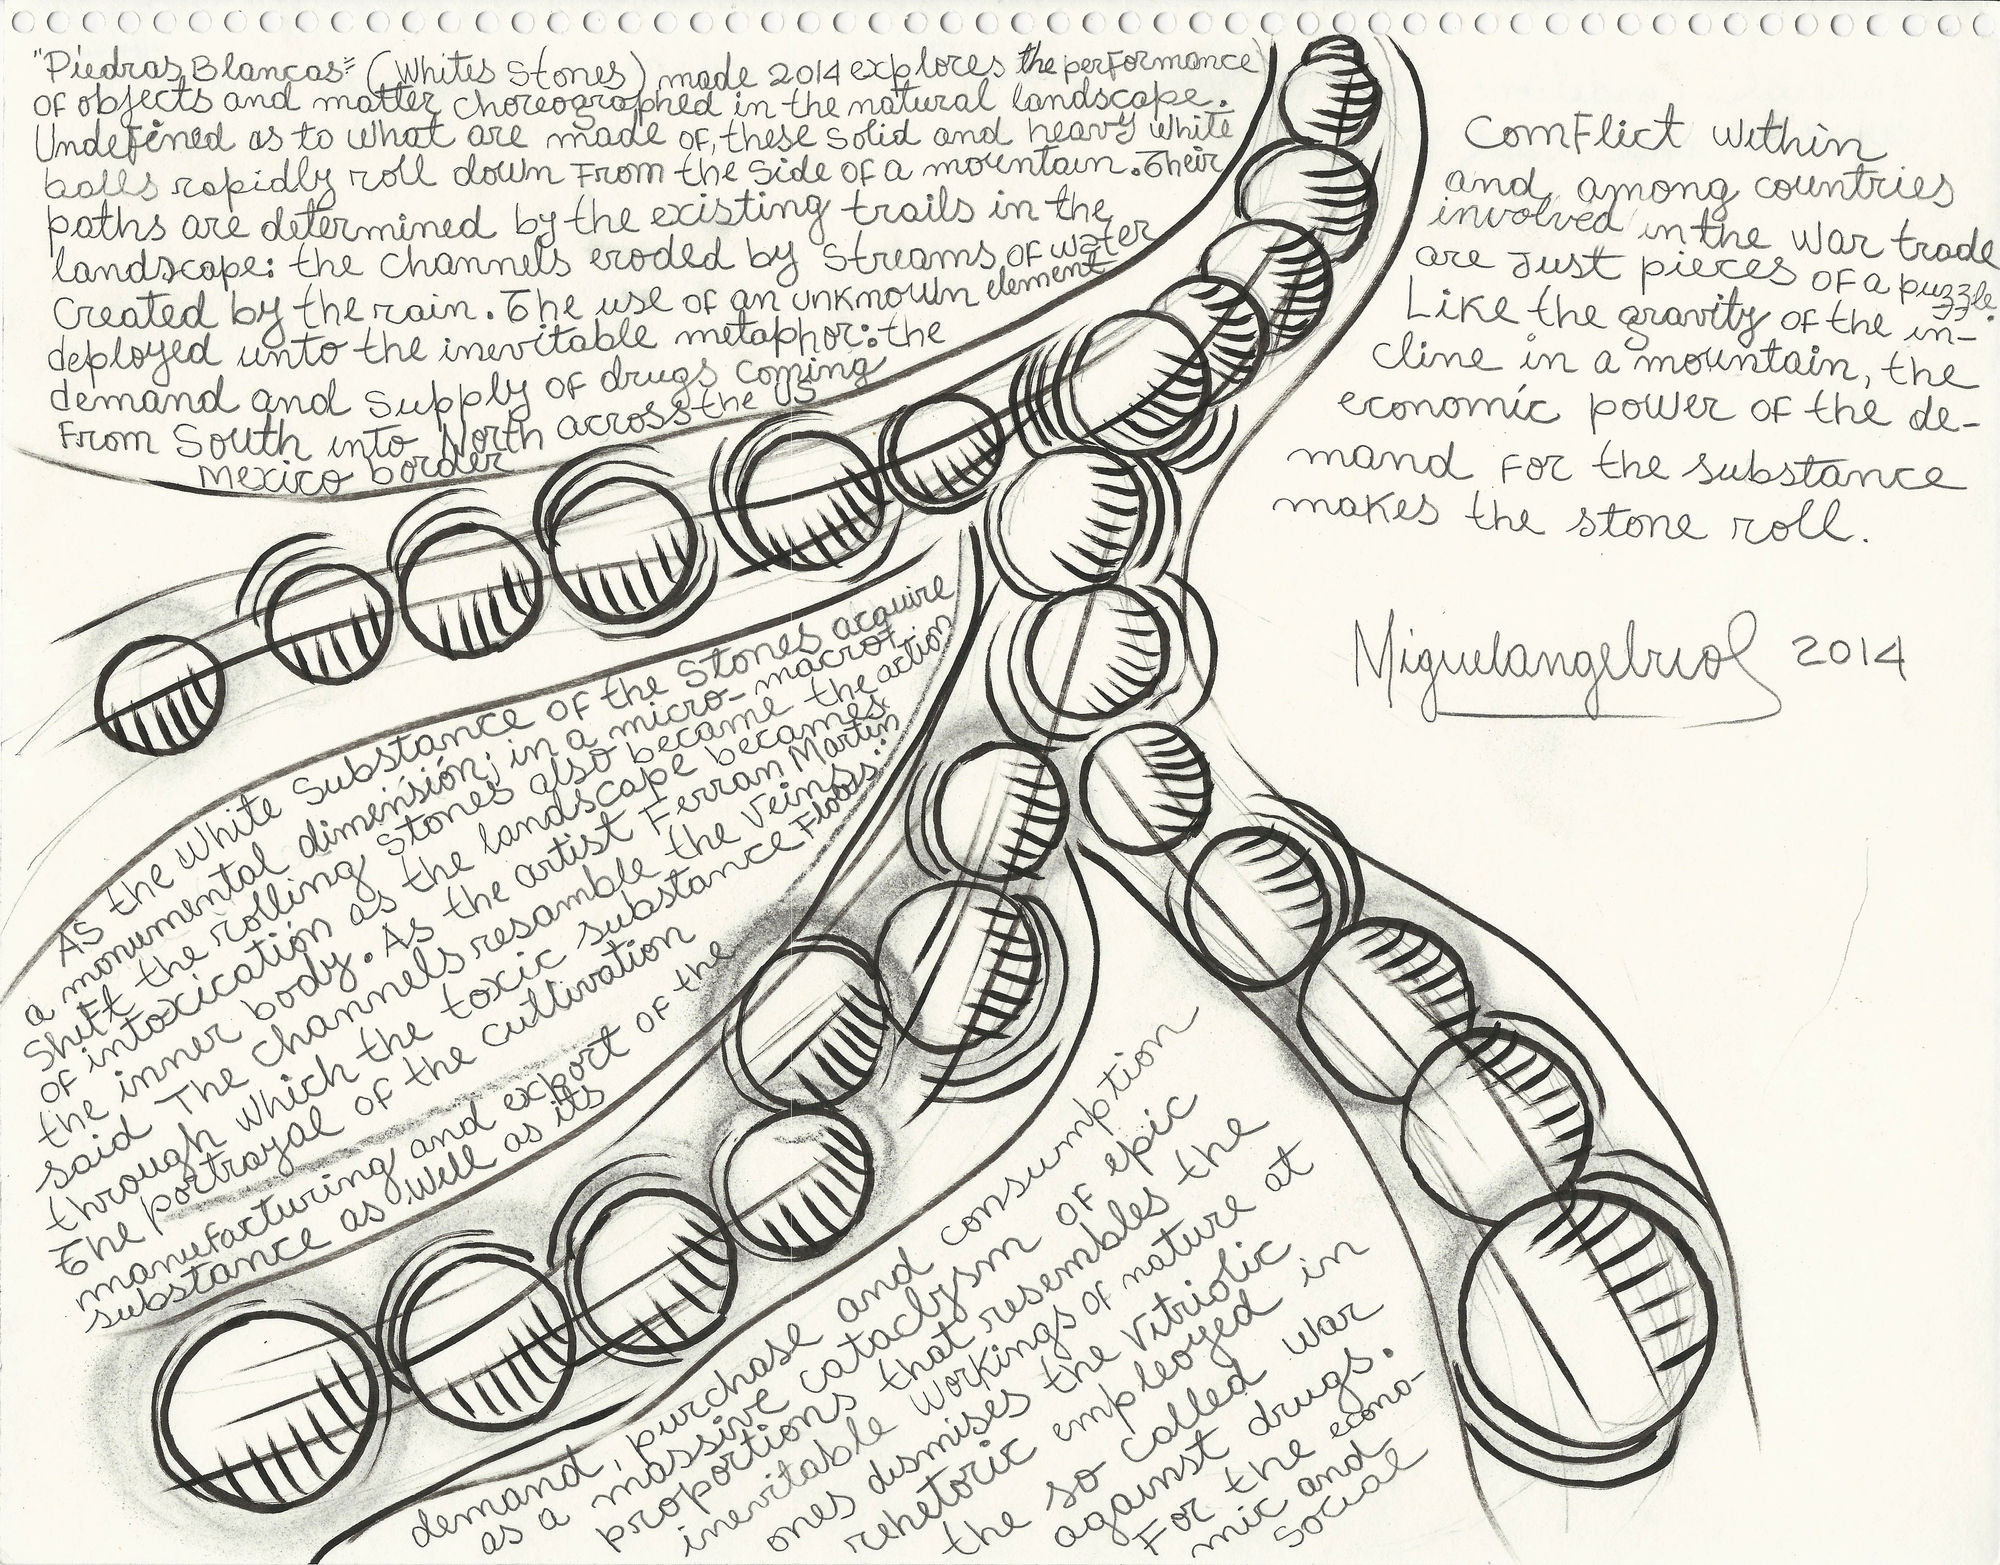 "Piedras Blancas" (Whites Stones) made 2014 explores the performance
of objects and matter choreographed in the natural landscape.
Undefined as to what are made of, these solid and heavy white
balls rapidly roll down from the side of a mountain. Their
paths are determined by the existing trails in the
landscape: the channels eroded by streams of water
created by the rain. The use of an unknown element
deployed unto the inevitable metaphor: the
demand and supply of drugs coming
from South into North across the US
Mexico border
As the white substance of the stones acquire
a monumental dimensión; in a micro-macrot
shift the rolling stones also became the action
of intoxicatión as the landscape becames
the inner body. As the artist Ferran Martin
said "The channels resamble the veins
through which the toxic substance flows":
The portrayal of the cultivation
manufacturing and export of the
substance as well as its
demand, purchase and consumption
as a massive cataclysm of epic
proportions that resembles the
inevitable workings of nature at
ones dismises the vitriolic
rehetoric empleoyed in
the so called war
against drugs.
For the econo-
mic and
social
Comflict within
and among countries
involved in the war trade
are just pieces of a puzzle.
Like the gravity of the in-
cline in a mountain, the
economic power of the de-
mand for the substance
makes the stone roll.
Miguelangelrios 2014